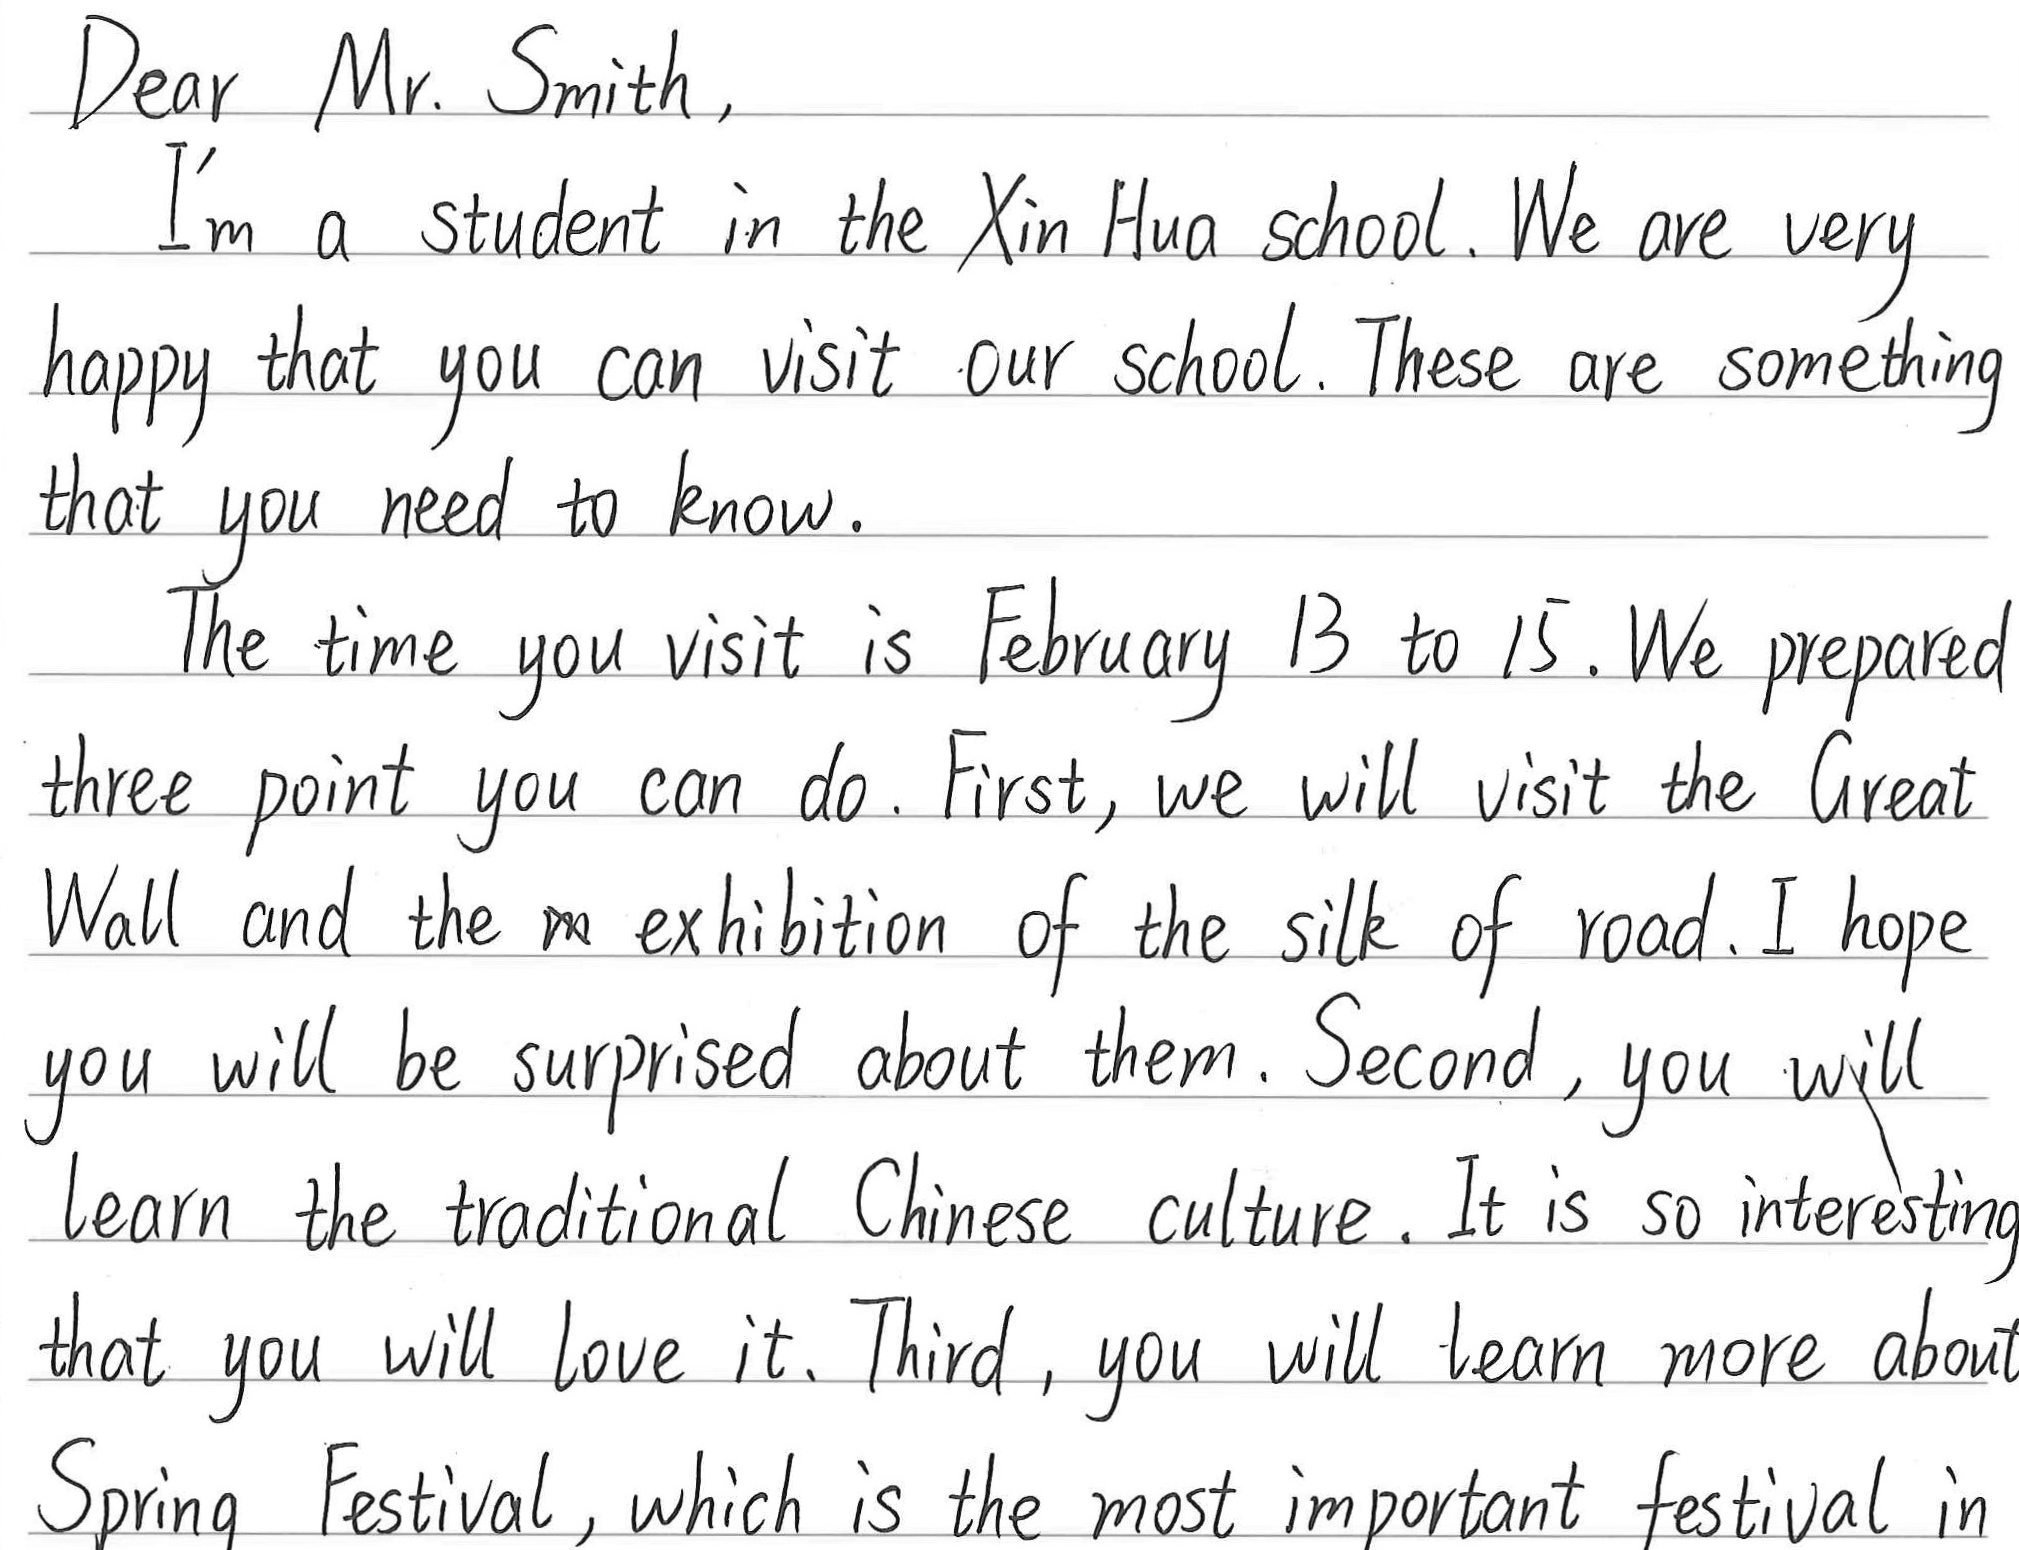 Dear Mr. Smith,
I'm a student in the Xin Hua school. We are very
happy that you can visit our school. These are something
that you need to know.
The time you visit is February 13 to 15. We prepared
three point you can do. First, we will visit the Great
Wall and the exhibition of the silk of road. I hope
you will be surprised about them. Second, you will
learn the traditional Chinese culture. It is so interesting
that you will love it. Third, you will learn more about
Spring Festival, which is the most important festival in